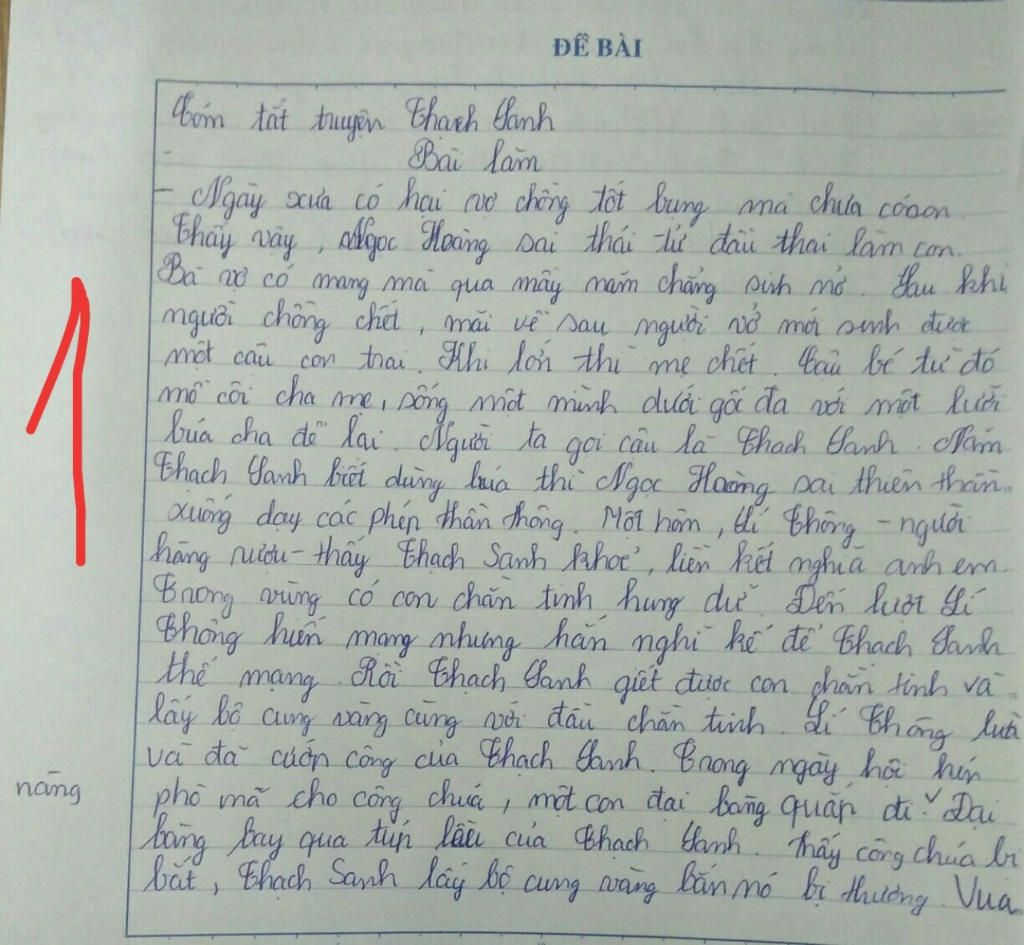 ĐỀ BÀI
Tóm tắt truyện Thạch Sanh
Bài làm
- Ngày xưa có hai vợ chồng tốt bụng mà chưa có con.
Thấy vậy, Ngọc Hoàng sai thái tử đầu thai làm con.
Bà vợ có mang mà qua mấy năm chẳng sinh nở. Sau khi
người chồng chết, mãi về sau người vợ mới sinh được
một cậu con trai. Khi lớn thì mẹ chết. Cậu bé từ đó
mồ côi cha mẹ, sống một mình dưới gốc đa với một lưỡi
búa cha để lại. Người ta gọi cậu là Thạch Sanh. Năm
Thạch Sanh biết dùng búa thì Ngọc Hoàng sai thiên thần
xuống dạy các phép thần thông. Một hôm, Lí Thông - người
hàng rượu - thấy Thạch Sanh khoẻ, liền kết nghĩa anh em.
Trong vùng có con chằn tinh hung dữ. Đến lượt Lí
Thông hiến mạng nhưng hắn nghĩ kế để Thạch Sanh
thế mạng. Rồi Thạch Sanh giết được con chằn tinh và
lấy bộ cung vàng cùng với đầu chằn tinh. Lí Thông lừa
và đã cướp công của Thạch Sanh. Trong ngày hội kén
phò mã cho công chúa, một con đại bàng quắp đi. Đại
nàng
bàng bay qua túp lều của Thạch Sanh. Thấy công chúa bị
bắt, Thạch Sanh lấy bộ cung vàng bắn nó bị thương. Vua
1